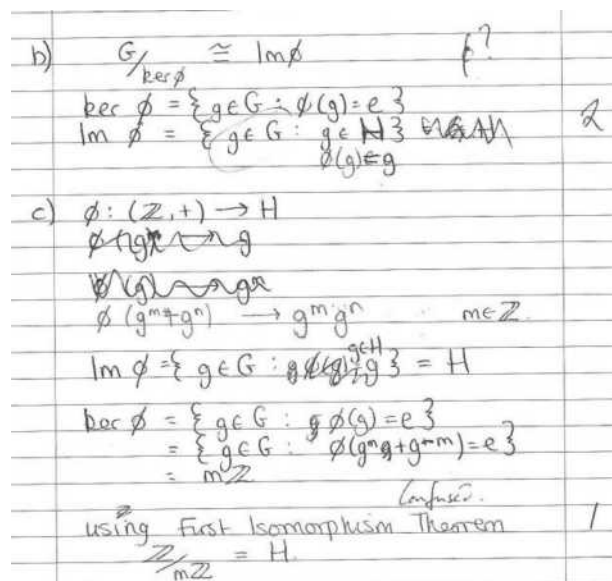 b) G/ker ϕ ≅ Im ϕ ?
ker ϕ = { g ∈ G : ϕ(g) = e }
Im ϕ = { g ∈ G : g ∈ H } 2
ϕ(g) ∈ g
c) ϕ : (ℤ, +) → H
ϕ (g^m + g^n) → g^m g^n m ∈ ℤ
g ∈ H
Im ϕ = { g ∈ G : g } = H
ker ϕ = { g ∈ G : ϕ(g) = e }
= { g ∈ G : ϕ(g^n + g^-m) = e }
= mℤ
Confused.
using First Isomorphism Theorem 1
ℤ/mℤ = H.